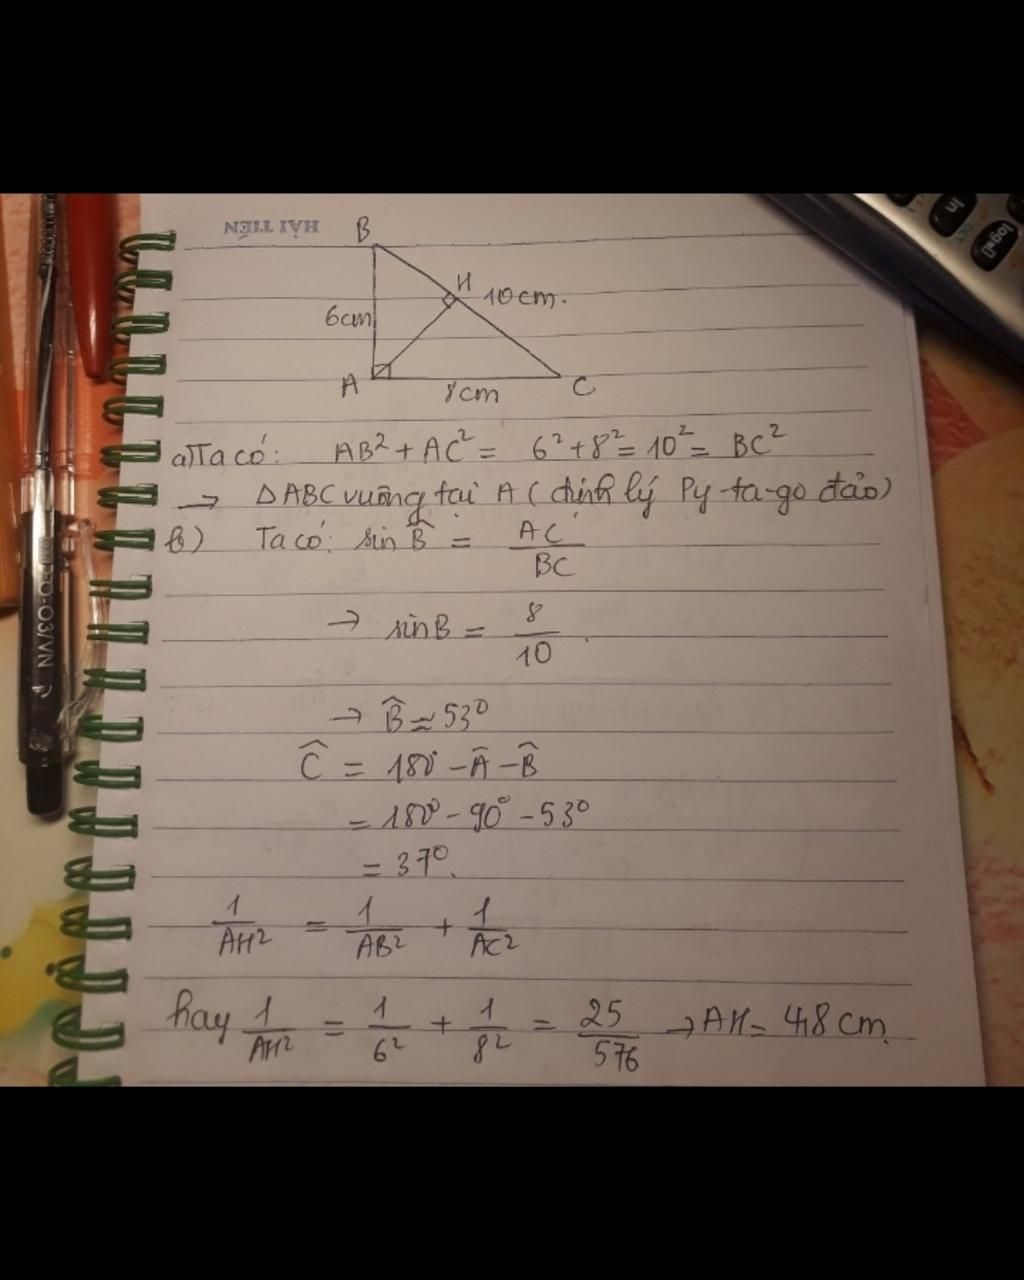 HẢI TIẾN
B
H
10cm.
6cm
A
8cm
C
a) Ta có: AB² + AC² = 6² + 8² = 10² = BC²
→ ΔABC vuông tại A (định lý Py-ta-go đảo)
b) Ta có: sin B̂ = AC/BC
→ sinB = 8/10.
→ B̂ ≈ 53°
Ĉ = 180° - Â - B̂
= 180° - 90° - 53°
= 37°.
1/AH² = 1/AB² + 1/AC²
hay 1/AH² = 1/6² + 1/8² = 25/576 → AH = 4,8 cm.
ln
log
-03/VN